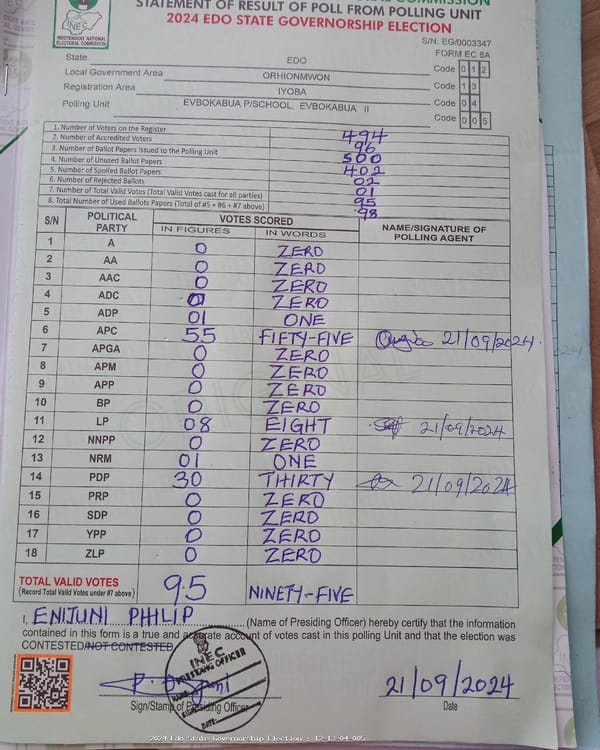 STATEMENT OF RESULT OF POLL FROM POLLING UNIT
2024 EDO STATE GOVERNORSHIP ELECTION
INEC
INDEPENDENT NATIONAL ELECTORAL COMMISSION
S/N: EG/0003347
FORM EC 8A
State EDO Code 1 2
Local Government Area ORHIONMWON Code 1 3
Registration Area IYOBA Code 0 4
Polling Unit EVBOKABUA P/SCHOOL, EVBOKABUA II Code 0 0 5
1. Number of Voters on the Register 494
2. Number of Accredited Voters 96
3. Number of Ballot Papers Issued to the Polling Unit 500
4. Number of Unused Ballot Papers 402
5. Number of Spoiled Ballot Papers 02
6. Number of Rejected Ballots 01
7. Number of Total Valid Votes (Total Valid Votes cast for all parties) 95
8. Total Number of Used Ballots Papers (Total of #5 + #6 + #7 above) 98
S/N POLITICAL PARTY VOTES SCORED NAME/SIGNATURE OF POLLING AGENT
IN FIGURES IN WORDS
1 A 0 ZERO
2 AA 0 ZERO
3 AAC 0 ZERO
4 ADC 0 ZERO
5 ADP 01 ONE
6 APC 55 FIFTY-FIVE 21/09/2024
7 APGA 0 ZERO
8 APM 0 ZERO
9 APP 0 ZERO
10 BP 0 ZERO
11 LP 08 EIGHT 21/09/2024
12 NNPP 0 ZERO
13 NRM 01 ONE
14 PDP 30 THIRTY 21/09/2024
15 PRP 0 ZERO
16 SDP 0 ZERO
17 YPP 0 ZERO
18 ZLP 0 ZERO
TOTAL VALID VOTES 95 NINETY-FIVE
(Record Total Valid Votes under #7 above)
I, ENIJUNI PHILIP (Name of Presiding Officer) hereby certify that the information
contained in this form is a true and accurate account of votes cast in this polling Unit and that the election was
CONTESTED/NOT CONTESTED
INEC
PRESIDING OFFICER
DATE:
21/09/2024
Sign/Stamp of Presiding Officer Date
2024 Edo State Governorship Election : 12-13-04-005